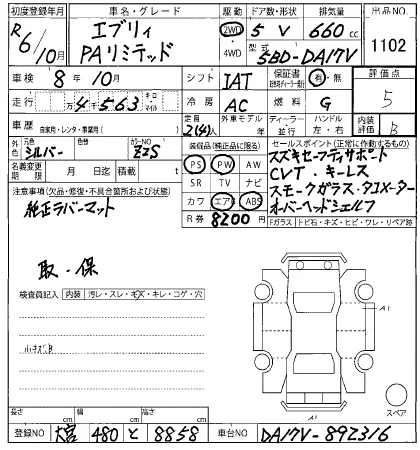 初度登録年月 車名・グレード 駆動 ドア数・形状 排気量 出品NO.
R6/10月 エブリィ PAリミテッド 2WD 4WD 5 V 660cc 1102
型式 5BD-DA17V
車検 8年10月 シフト IAT 保証書 有・無 評価点 5
走行 万4千563 キロ・マイル 冷房 AC 燃料 G
車歴 自家用・レンタ・事業用( ) 定員 2(4)人 外車モデル 年 ディーラー・並行 ハンドル 左・右 内装評価 B
外色 元色 シルバー 色替 カラーNO ZZS 装備品(純正品に限る) セールスポイント(正常に作動するもの)
名義変更期限 月 日迄 積載 t PS PW AW スズキセーフティサポート
注意事項(欠品・修復・不具合箇所および状態) SR TV ナビ CVT・キーレス
純正ラバーマット カワ エアB ABS スモークガラス・タコメーター
R券 8200円 オーバーヘッドシェルフ
Fガラス トビ石・キズ・ヒビ・ワレ・リペア跡
取・保
検査員記入 内装 汚レ・スレ・キズ・キレ・コゲ・穴
小キズB
A1
A1
スペア
長さ cm 幅 cm 高さ cm
登録NO 大宮 480 と 8858 車台NO DA17V-892316